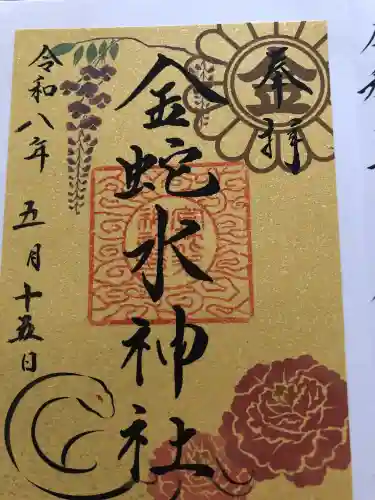 奉拝
金蛇水神社
令和八年 五月十五日
金